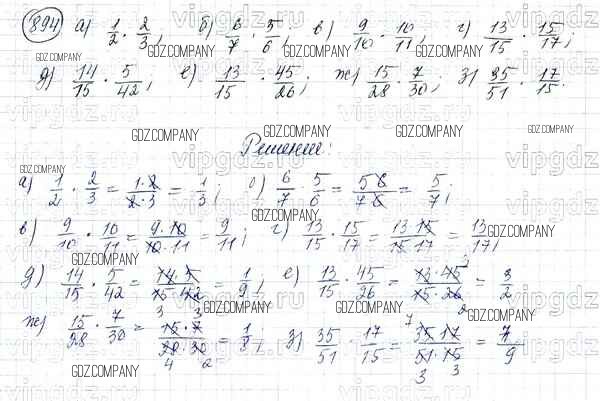 894 а) 1/2 · 2/3; б) 6/7 · 5/6; в) 9/10 · 10/11; г) 13/15 · 15/17;
д) 14/15 · 5/42; е) 13/15 · 45/26; ж) 15/28 · 7/30; з) 35/51 · 17/15.
Решение:
а) 1/2 · 2/3 = 1·2/2·3 = 1/3; б) 6/7 · 5/6 = 5 6/7 6 = 5/7;
в) 9/10 · 10/11 = 9·10/10·11 = 9/11; г) 13/15 · 15/17 = 13·15/15·17 = 13/17;
д) 14/15 · 5/42 = 14·5/15·42 = 1/9; е) 13/15 · 45/26 = 13·45/15·26 = 3/2
ж) 15/28 · 7/30 = 15·7/28·30 = 1/8; з) 35/51 · 17/15 = 35·17/51·15 = 7/9
GDZ.COMPANY
vipgdz.ru